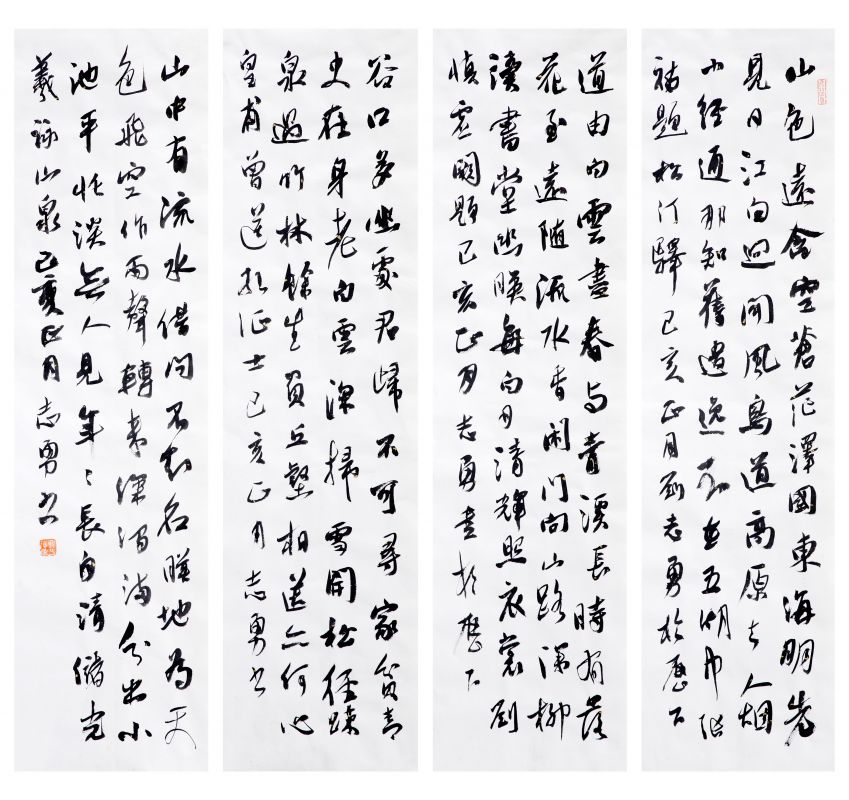 山色遠含空蒼茫澤國東海明先
見日江白迥聞風鳥道高原去人烟
小徑通那知舊遺逸不在五湖中張
祜題松汀驛己亥正月劉志勇於歷下
道由白雲盡春与青溪長時有落
花至遠随流水香闲门向山路深柳
讀書堂幽映每白日清輝照衣裳劉
慎虚闕題己亥正月志勇書於歷下
谷口多幽處君歸不可尋家貧青
史在身老白雲深掃雪開松徑疎
泉過竹林餘生負丘壑相送亦何心
皇甫曾送孔征士己亥正月志勇書
山中有流水借問不知名映地為天
色飛空作雨聲轉來深澗滿分出小
池平恬淡無人見年〻長自清儲光
羲詠山泉己亥正月志勇書